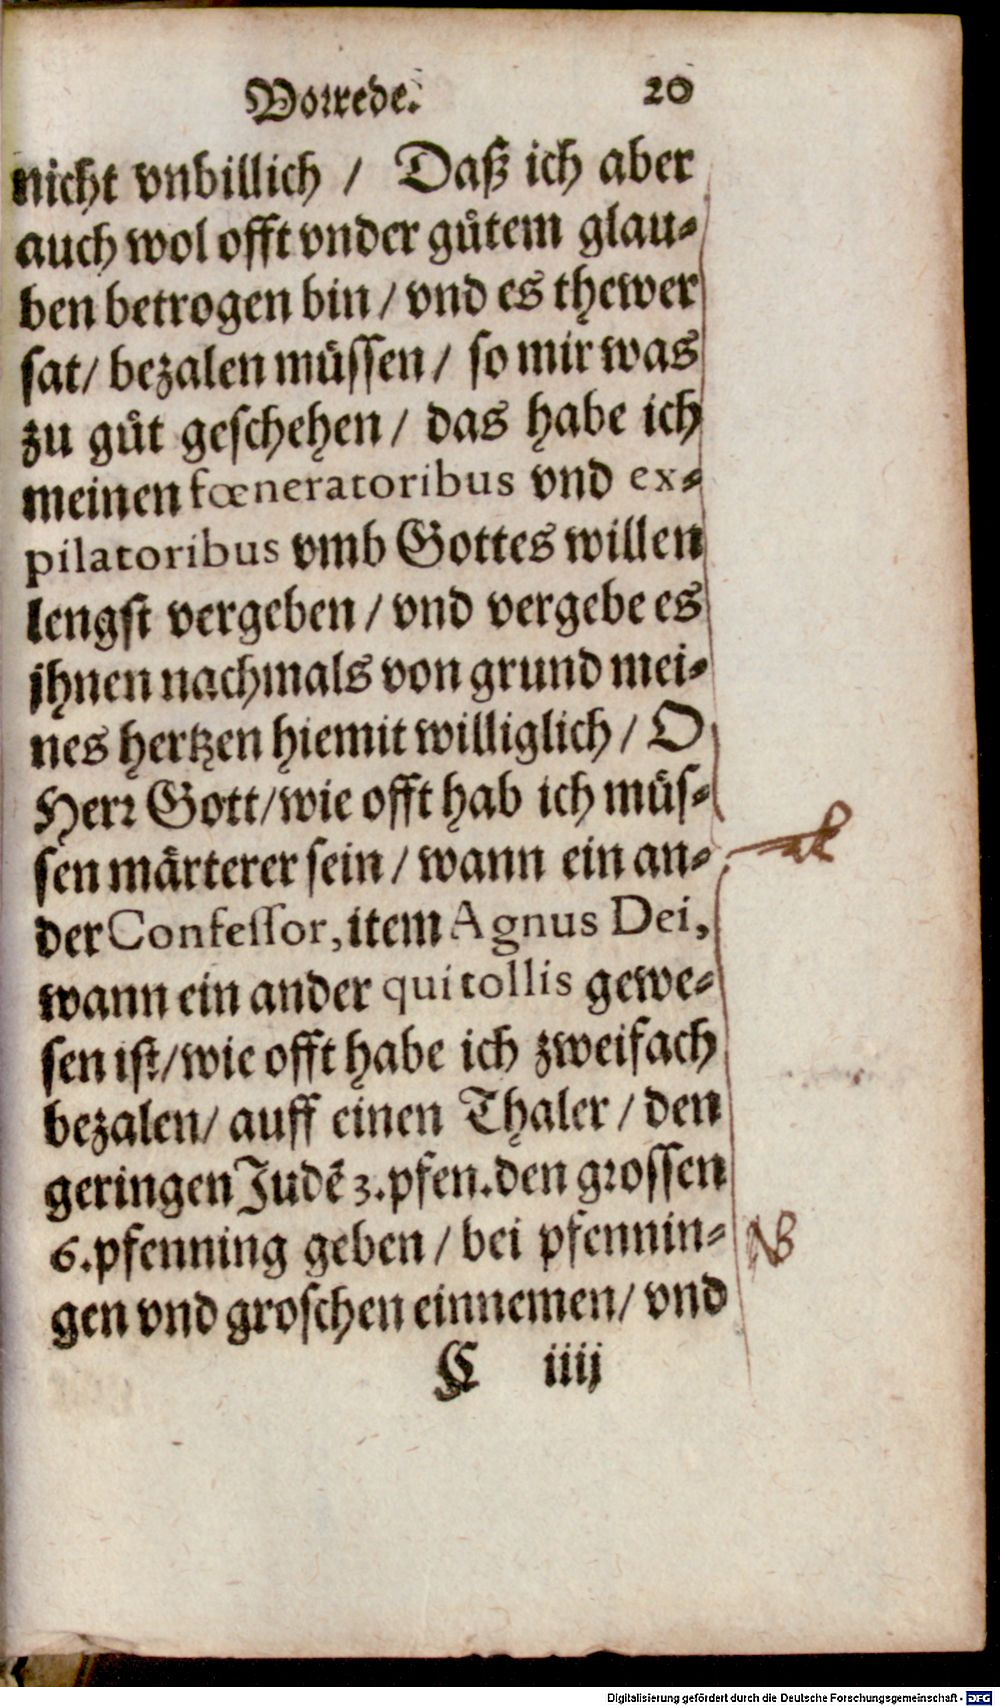 Vorrede. 20
nicht vnbillich / Daß ich aber
auch wol offt vnder gůtem glau-
ben betrogen bin / vnd es thewer
sat / bezalen müssen / so mir was
zu gůt geschehen / das habe ich
meinen fœneratoribus vnd ex-
pilatoribus vmb Gottes willen
lengst vergeben / vnd vergebe es
jhnen nachmals von grund mei-
nes hertzen hiemit williglich / O
Herr Gott / wie offt hab ich müs-
sen märterer sein / wann ein an-
der Confessor, item Agnus Dei,
wann ein ander qui tollis gewe-
sen ist / wie offt habe ich zweifach
bezalen / auff einen Thaler / den
geringen Judē 3. pfen. den grossen
6. pfenning geben / bei pfennin-
gen vnd groschen einnemen / vnd
C iiij
NB
Digitalisierung gefördert durch die Deutsche Forschungsgemeinschaft - DFG